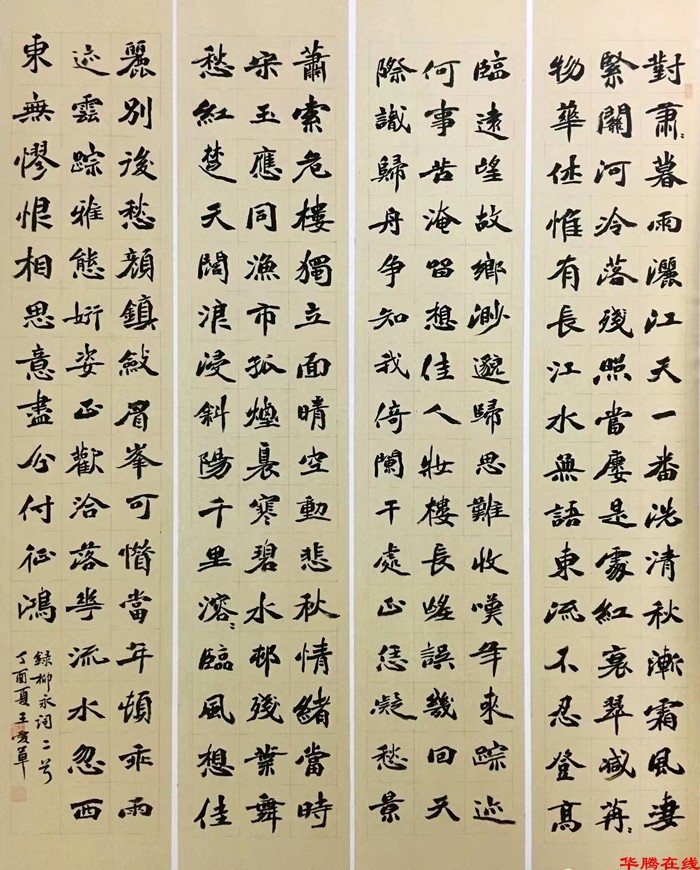 對蕭〻暮雨灑江天一番洗清秋漸霜風淒
緊關河冷落殘照當廔是處紅衰翠減苒〻
物華休惟有長江水無語東流不忍登高
臨遠望故鄉渺邈歸思難收嘆年來踪迹
何事苦淹留想佳人妝樓長嗟誤幾回天
際識歸舟爭知我倚闌干處正恁凝愁景
蕭索危樓獨立面晴空動悲秋情緒當時
宋玉應同漁市孤煙裊寒碧水邨殘葉舞
愁紅楚天闊浪浸斜陽千里溶〻臨風想佳
麗別後愁顏鎮斂眉峯可惜當年頓乖雨
迹雲踪雅態妍姿正歡洽落花流水忽西
東無憀恨相思意盡分付征鴻
錄柳永詞二首
丁酉夏王愛
华腾在线